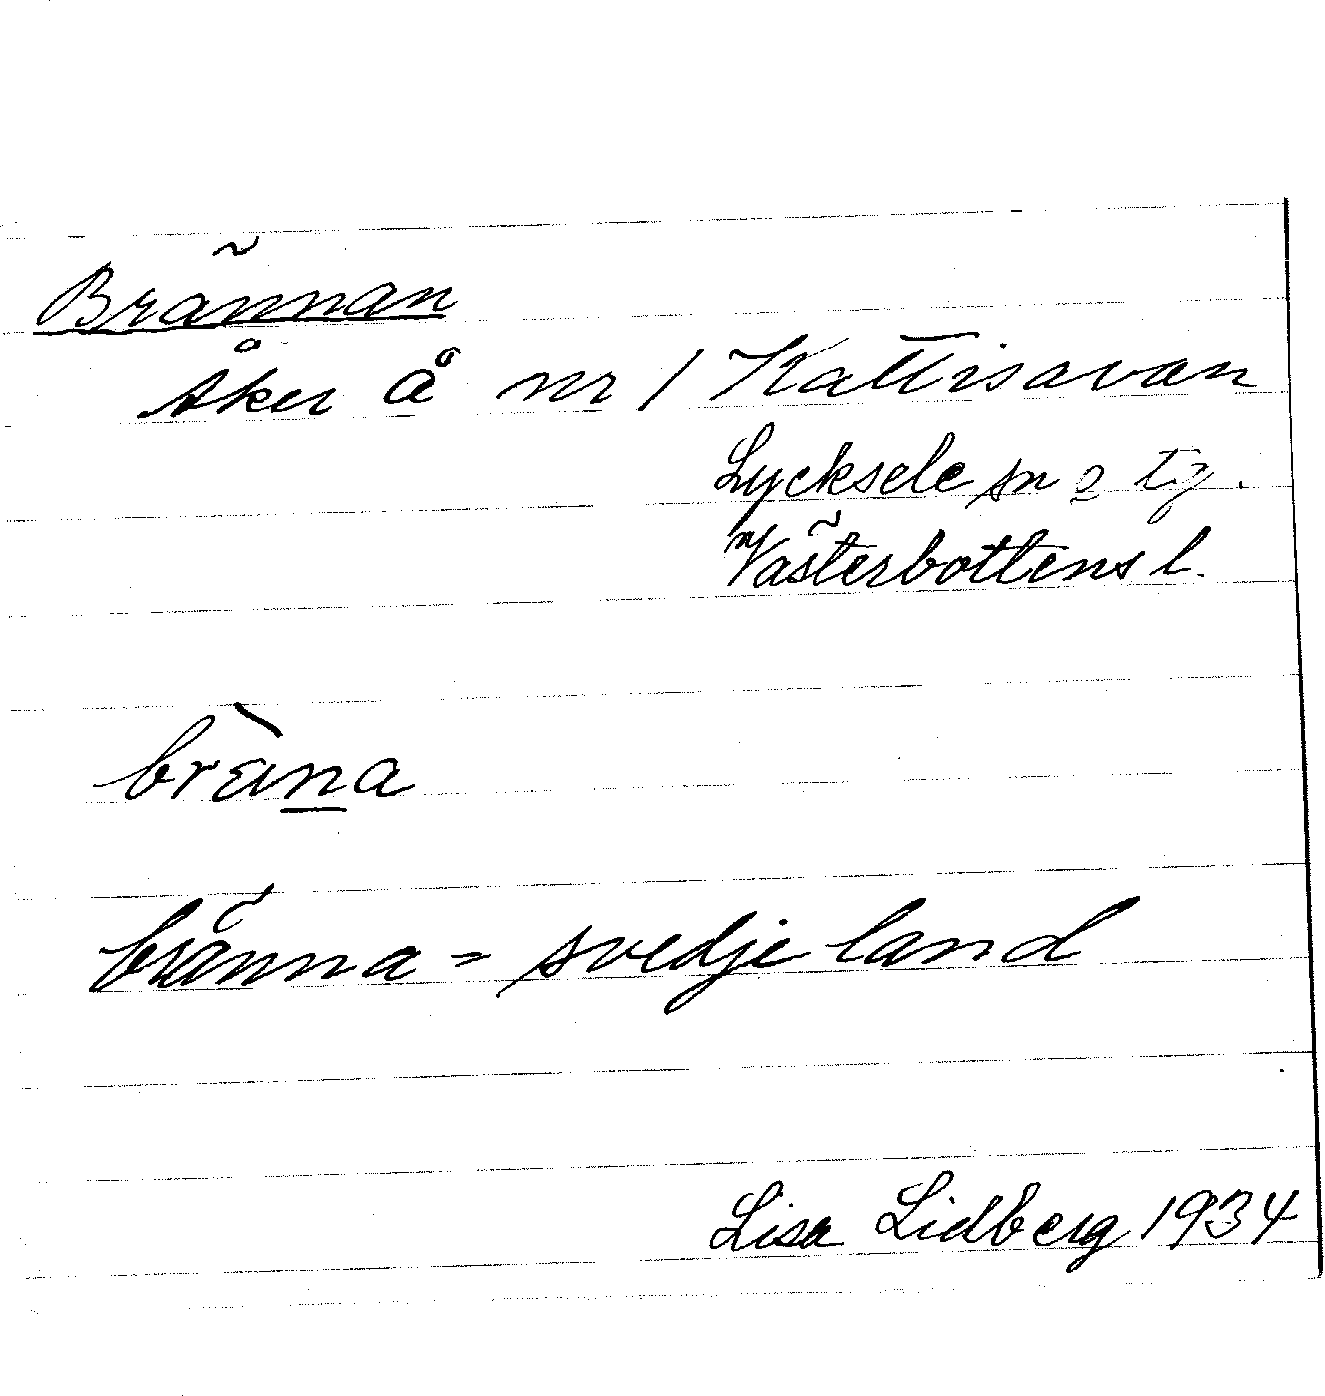 Brännan
åker å nr 1 Kattisavan
Lycksele sn o tg.
Västerbottens l.
bräna
bränna = svedjeland
Lisa Lidberg 1934